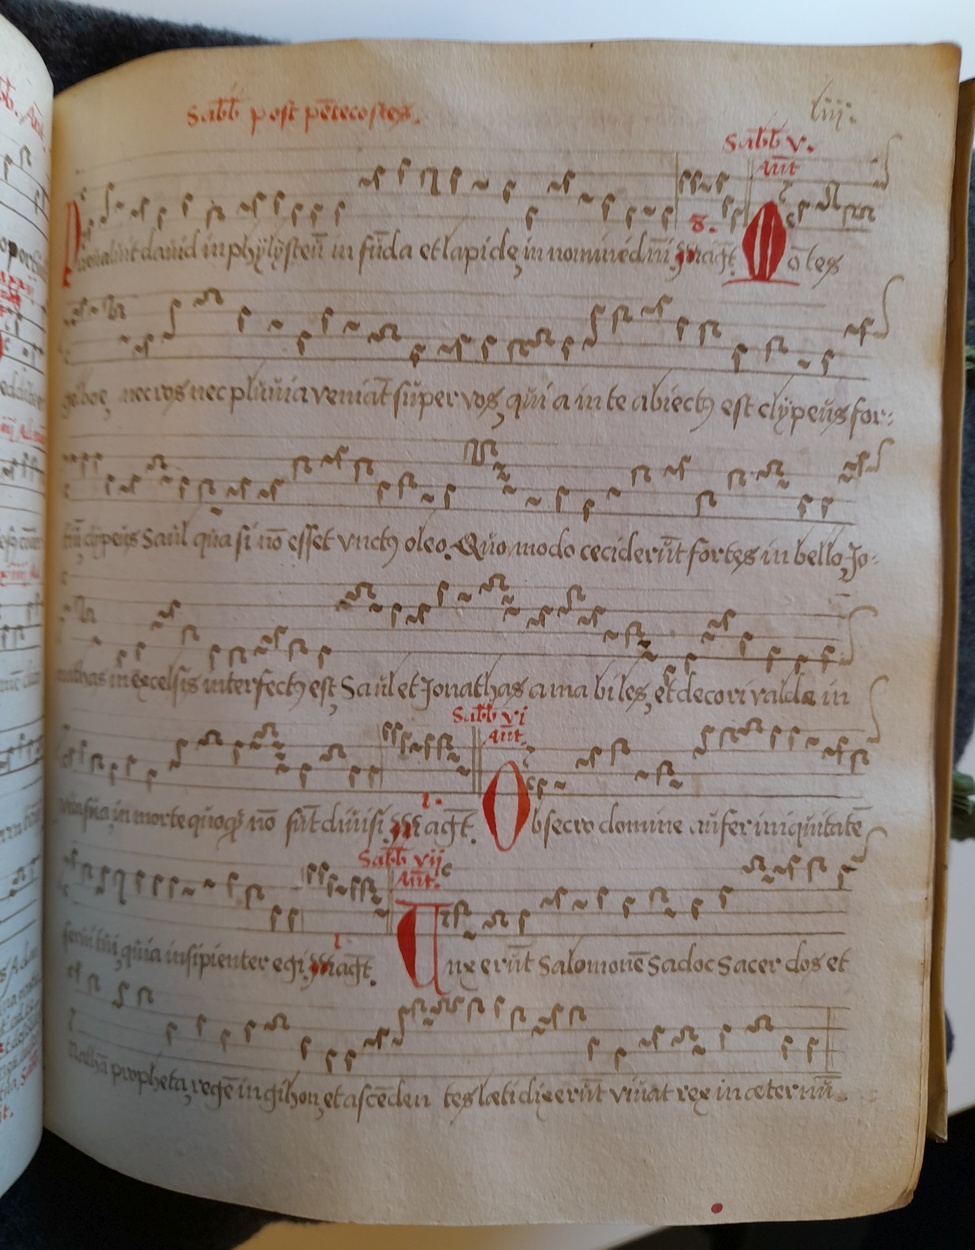 Sabb̄ post pētecostes.
liij.
Sabb̄ v.
Ant̄
8.
Preualuit dauid in phylysteū in fūda et lapide, in nomine dn̄i. Magt̄. Mōtes
gelboe, nec ros nec pluuia veniāt super vos, quia in te abiectꝯ est clypeus for-
tiū, clypeus Saul quasi nō esset vnctꝯ oleo. Quomodo ceciderūt fortes in bello, Jo-
nathas in excelsis interfectꝯ est, Saul et Jonathas amabiles, et decori valde in
Sabb̄ vi
Ant̄.
1.
vita sua, in morte quoqꝫ nō sūt diuisi. Magt̄. Obsecro domine aufer iniquitatē
Sabb̄ vij
Ant̄.
1.
serui tui, quia insipienter egi. Magt̄. Unxerūt Salomonē Sadoc Sacerdos et
Nathā propheta, regē in gihon, et ascēdentes læti dixerūt viuat rex in æternū.